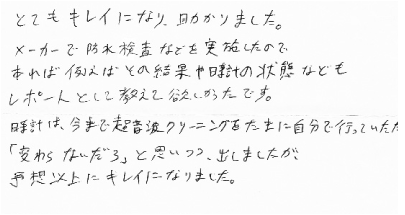 とてもキレイになり、助かりました。
メーカーで防水検査などを実施したので
あれば例えばその結果や時計の状態なども
レポートとして教えて欲しかったです。
時計は、今まで超音波クリーニングをたまに自分で行っていたため
「変わらないだろ」と思いつつ、出しましたが、
予想以上にキレイになりました。